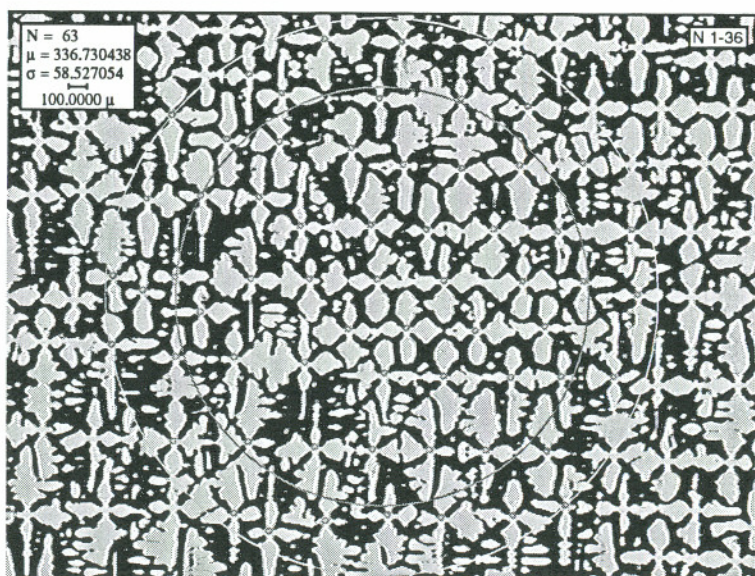 N = 63
μ = 336.730438
σ = 58.527054
100.0000 μ
N 1-36